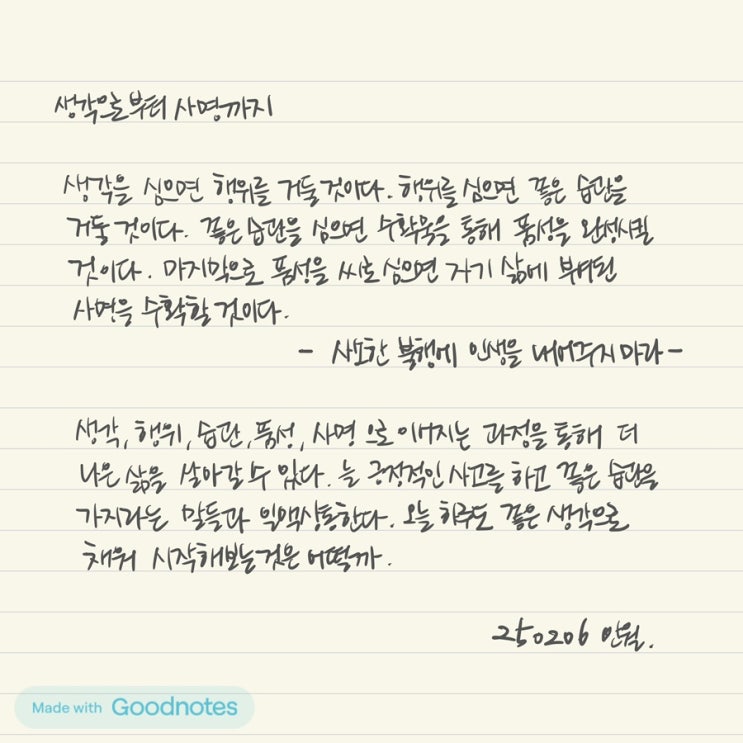 생각으로부터 사명까지
생각을 심으면 행위를 거둘 것이다. 행위를 심으면 좋은 습관을
거둘 것이다. 좋은 습관을 심으면 수확물을 통해 품성을 완성시킬
것이다. 마지막으로 품성을 씨로 심으면 자기 삶에 부여된
사명을 수확할 것이다.
- 사소한 불행에 인생을 내어주지 마라 -
생각, 행위, 습관, 품성, 사명 으로 이어지는 과정을 통해 더
나은 삶을 살아갈 수 있다. 늘 긍정적인 사고를 하고 좋은 습관을
가지라는 말들과 일맥상통한다. 오늘 하루도 좋은 생각으로
채워 시작해보는 것은 어떨까.
250206
Made with Goodnotes